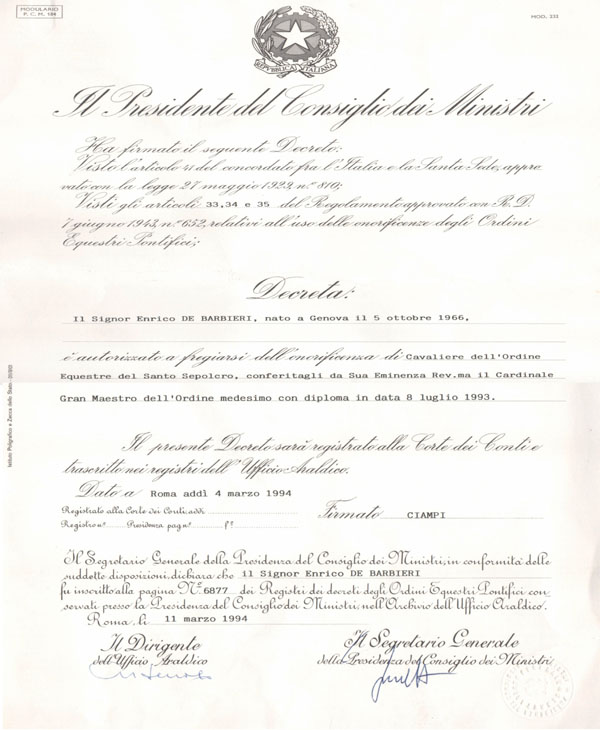 MODULARIO
P. C. M. 194
MOD. 251
REPVBBLICA ITALIANA
Il Presidente del Consiglio dei Ministri
Ha firmato il seguente Decreto:
Visto l'articolo 41 del concordato fra l'Italia e la Santa Sede, appro
vato con la legge 27 maggio 1929, n° 810;
Visti gli articoli 33,34 e 35 del Regolamento approvato con R. D.
7 giugno 1943, n° 652, relativi all'uso delle onorificenze degli Ordini
Equestri Pontifici;
Decreta:
Il Signor Enrico DE BARBIERI, nato a Genova il 5 ottobre 1966,
è autorizzato a fregiarsi dell'onorificenza di Cavaliere dell'Ordine
Equestre del Santo Sepolcro, conferitagli da Sua Eminenza Rev.ma il Cardinale
Gran Maestro dell'Ordine medesimo con diploma in data 8 luglio 1993.
Il presente Decreto sarà registrato alla Corte dei Conti e
trascritto nei registri dell'Ufficio Araldico.
Dato a Roma addì 4 marzo 1994
Registrato alla Corte dei Conti, addì
Firmato CIAMPI
Registro n° Presidenza pag.ª f.°
Il Segretario Generale della Presidenza del Consiglio dei Ministri, in conformità delle
suddette disposizioni, dichiara che il Signor Enrico DE BARBIERI
fu inscritto alla pagina N.° 6877 dei Registri dei decreti degli Ordini Equestri Pontifici con
servati presso la Presidenza del Consiglio dei Ministri, nell'Archivio dell'Ufficio Araldico.
Roma, li 11 marzo 1994
Il Dirigente
dell'Ufficio Araldico
Il Segretario Generale
della Presidenza del Consiglio dei Ministri
Istituto Poligrafico e Zecca dello Stato